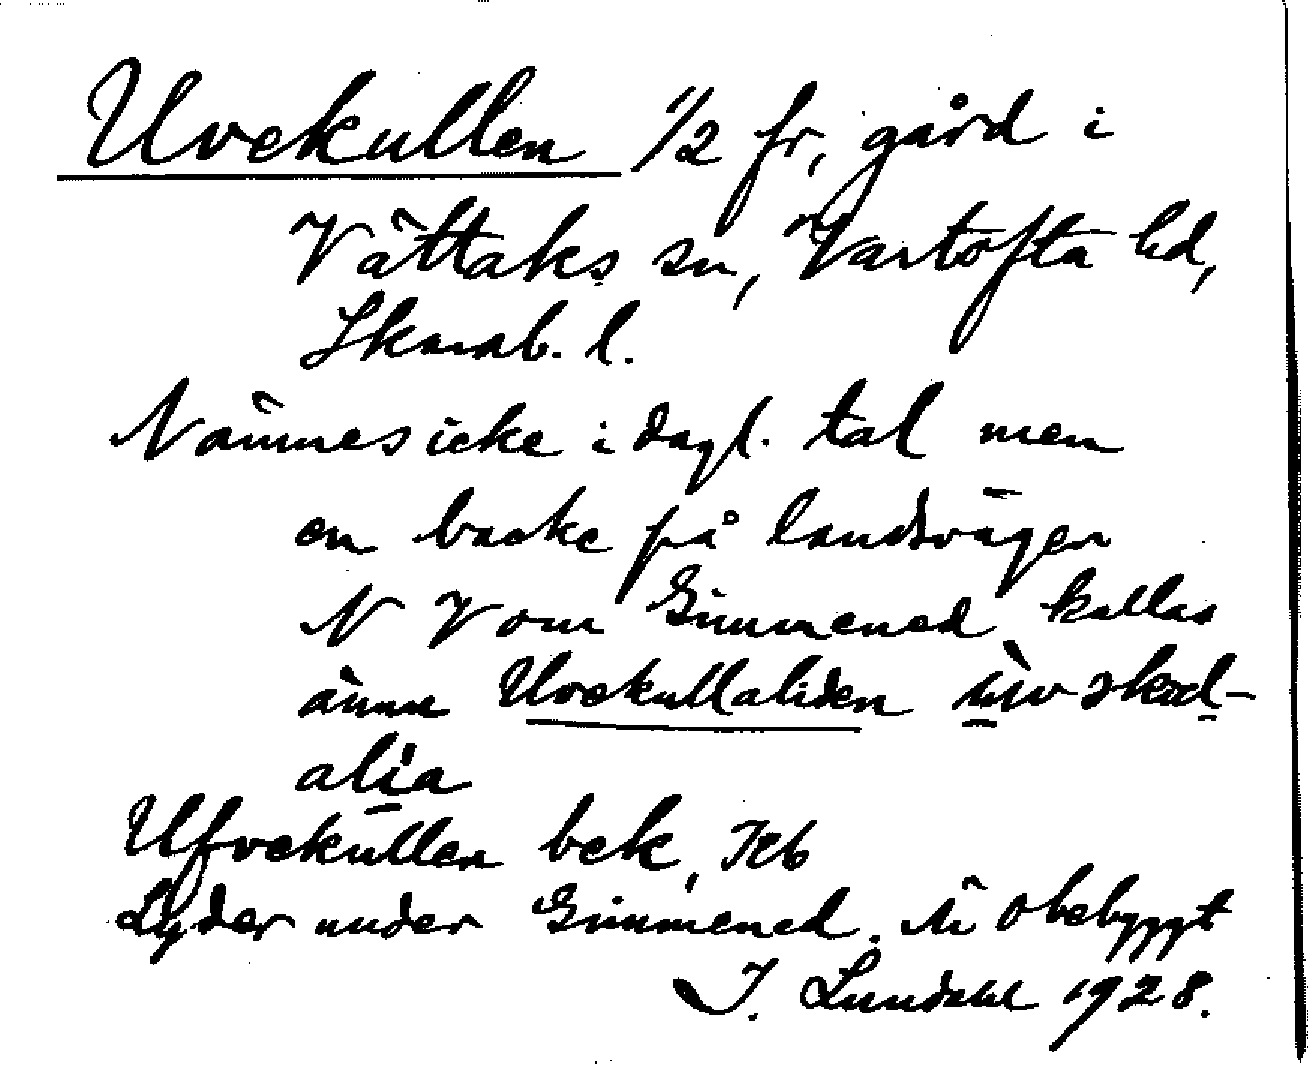 Uvekullen 1/2 fr, gård i
Vättaks sn, Vartofta hd,
Skarab. l.
Nämnes icke i dagl. tal men
en backe på landsvägen
N V om Simmened kallas
ännu Uvekullaliden
alia
Ufvekullen bek, Jeb
Lyder under Simmened. Är obebyggt
I. Lundahl 1928.